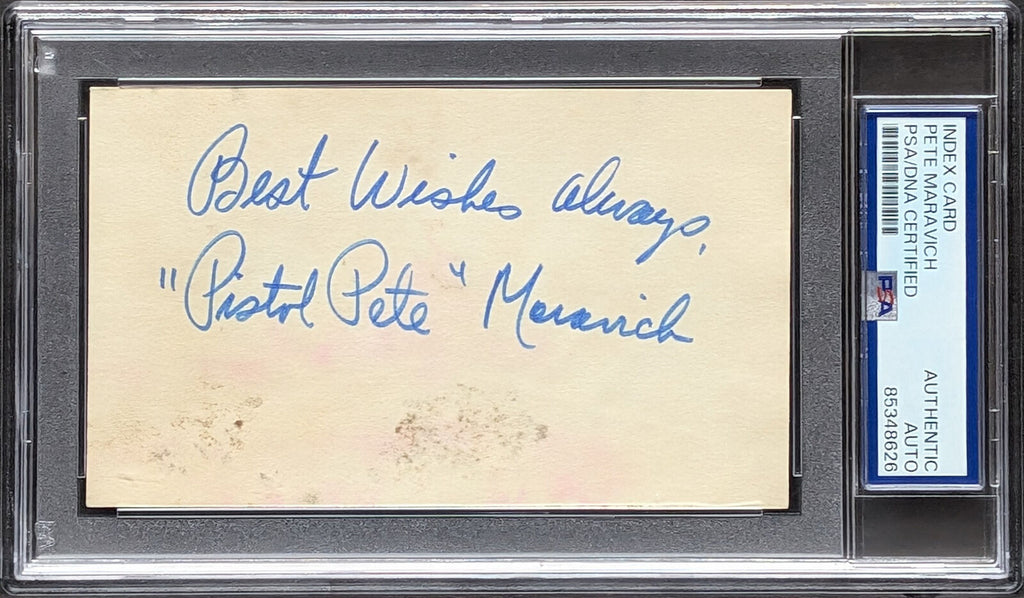 Best Wishes always,
"Pistol Pete" Maravich
INDEX CARD
PETE MARAVICH
PSA/DNA CERTIFIED
PSA
AUTHENTIC
AUTO
85348626